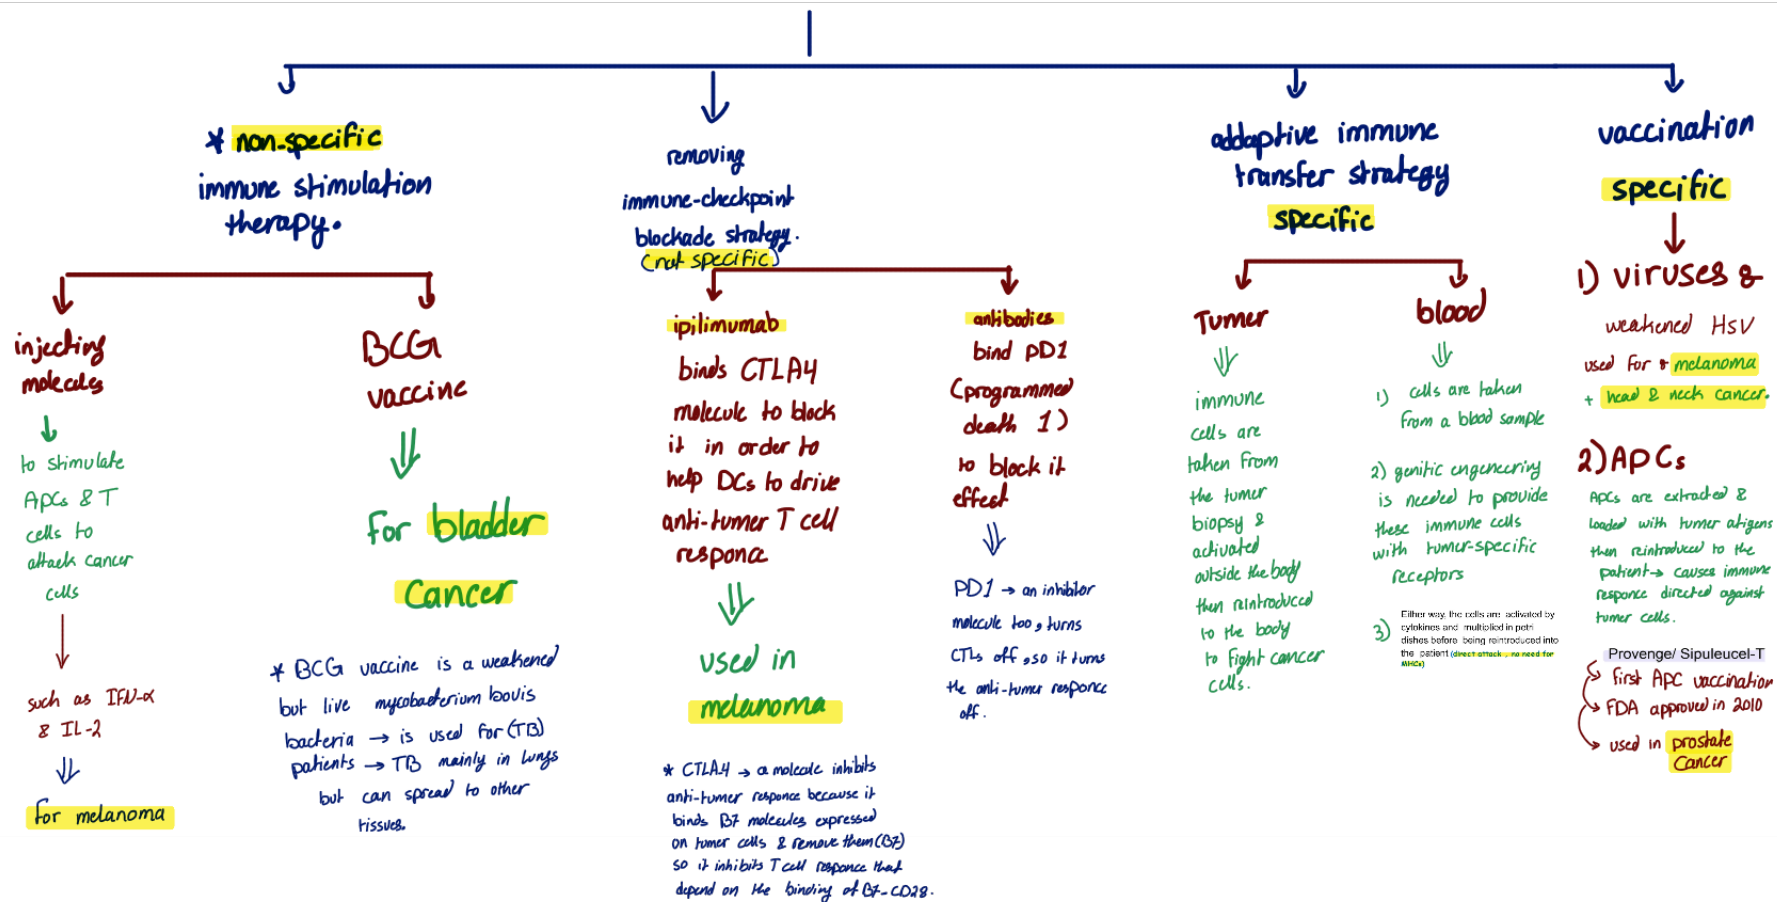 * non-specific
immune stimulation
therapy.
injecting
molecules
to stimulate
APCs & T
cells to
attack cancer
cells
such as IFN-α
& IL-2
for melanoma
BCG
vaccine
for bladder
Cancer
* BCG vaccine is a weakened
but live mycobacterium bovis
bacteria → is used for (TB)
patients → TB mainly in lungs
but can spread to other
tissues.
removing
immune-checkpoint
blockade strategy.
(not specific)
ipilimumab
binds CTLA4
molecule to block
it in order to
help DCs to drive
anti-tumer T cell
responce
used in
melanoma
* CTLA4 → a molecule inhibits
anti-tumer responce because it
binds B7 molecules expressed
on tumer cells & remove them (B7)
so it inhibits T cell responce that
depend on the binding of B7-CD28.
antibodies
bind PD1
(programmed
death 1)
to block it
effect
PD1 → an inhibitor
molecule too, turns
CTLs off, so it turns
the anti-tumer responce
off.
addaptive immune
transfer strategy
specific
Tumer
immune
cells are
taken from
the tumer
biopsy &
activated
outside the body
then reintroduced
to the body
to fight cancer
cells.
blood
1) cells are taken
from a blood sample
2) genitic engeneering
is needed to provide
these immune cells
with tumer-specific
receptors
3) Either way, the cells are activated by
cytokines and multiplied in petri
dishes before being reintroduced into
the patient (direct attack, no need for
MHCs)
vaccination
specific
1) viruses &
weakened HSV
used for & melanoma
+ head & neck cancer.
2) APCs
APCs are extracted &
loaded with tumer atigens
then reintroduced to the
patient → causes immune
responce directed against
tumer cells.
Provenge/ Sipuleucel-T
first APC vaccination
FDA approved in 2010
used in prostate
Cancer